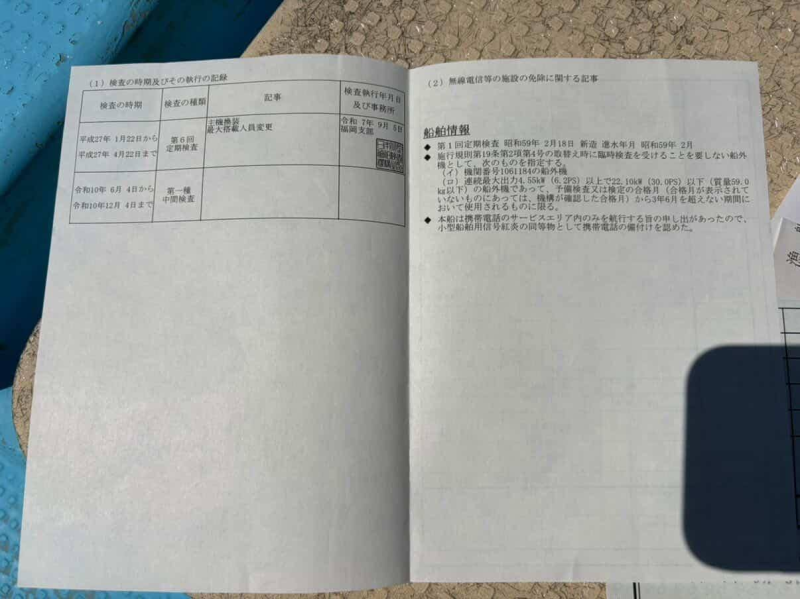 (1) 検査の時期及びその執行の記録
検査の時期
検査の種類
記事
検査執行年月日
及び事務所
平成27年 1月22日から
平成27年 4月22日まで
第6回
定期検査
主機換装
最大搭載人員変更
令和 7年 9月 5日
福岡支部
令和10年 6月 4日から
令和10年12月 4日まで
第一種
中間検査
(2) 無線電信等の施設の免除に関する記事
船舶情報
◆ 第1回定期検査 昭和59年 2月18日 新造 進水年月 昭和59年 2月
◆ 施行規則第19条第2項第4号の取替え時に臨時検査を受けることを要しない船外
機として、次のものを指定する。
(イ) 機関番号1061184の船外機
(ロ) 連続最大出力4.55kW (6.2PS) 以上で22.10kW (30.0PS) 以下 (質量59.0
kg以下) の船外機であって、予備検査又は検定の合格月 (合格月が表示されて
いないものにあっては、機構が確認した合格月) から3年6月を超えない期間に
おいて使用されるものに限る。
◆ 本船は携帯電話のサービスエリア内のみを航行する旨の申し出があったので、
小型船舶用信号紅炎の同等物として携帯電話の備付けを認めた。